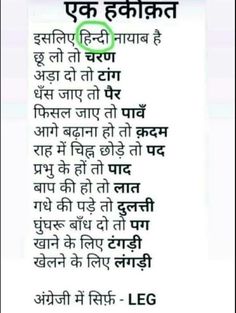 एक हकीक़त
इसलिए हिन्दी नायाब है
छू लो तो चरण
अड़ा दो तो टांग
धँस जाए तो पैर
फिसल जाए तो पावँ
आगे बढ़ाना हो तो क़दम
राह में चिह्न छोड़े तो पद
प्रभु के हों तो पाद
बाप की हो तो लात
गधे की पड़े तो दुलत्ती
घुंघरू बाँध दो तो पग
खाने के लिए टंगड़ी
खेलने के लिए लंगड़ी
अंग्रेजी में सिर्फ़ - LEG